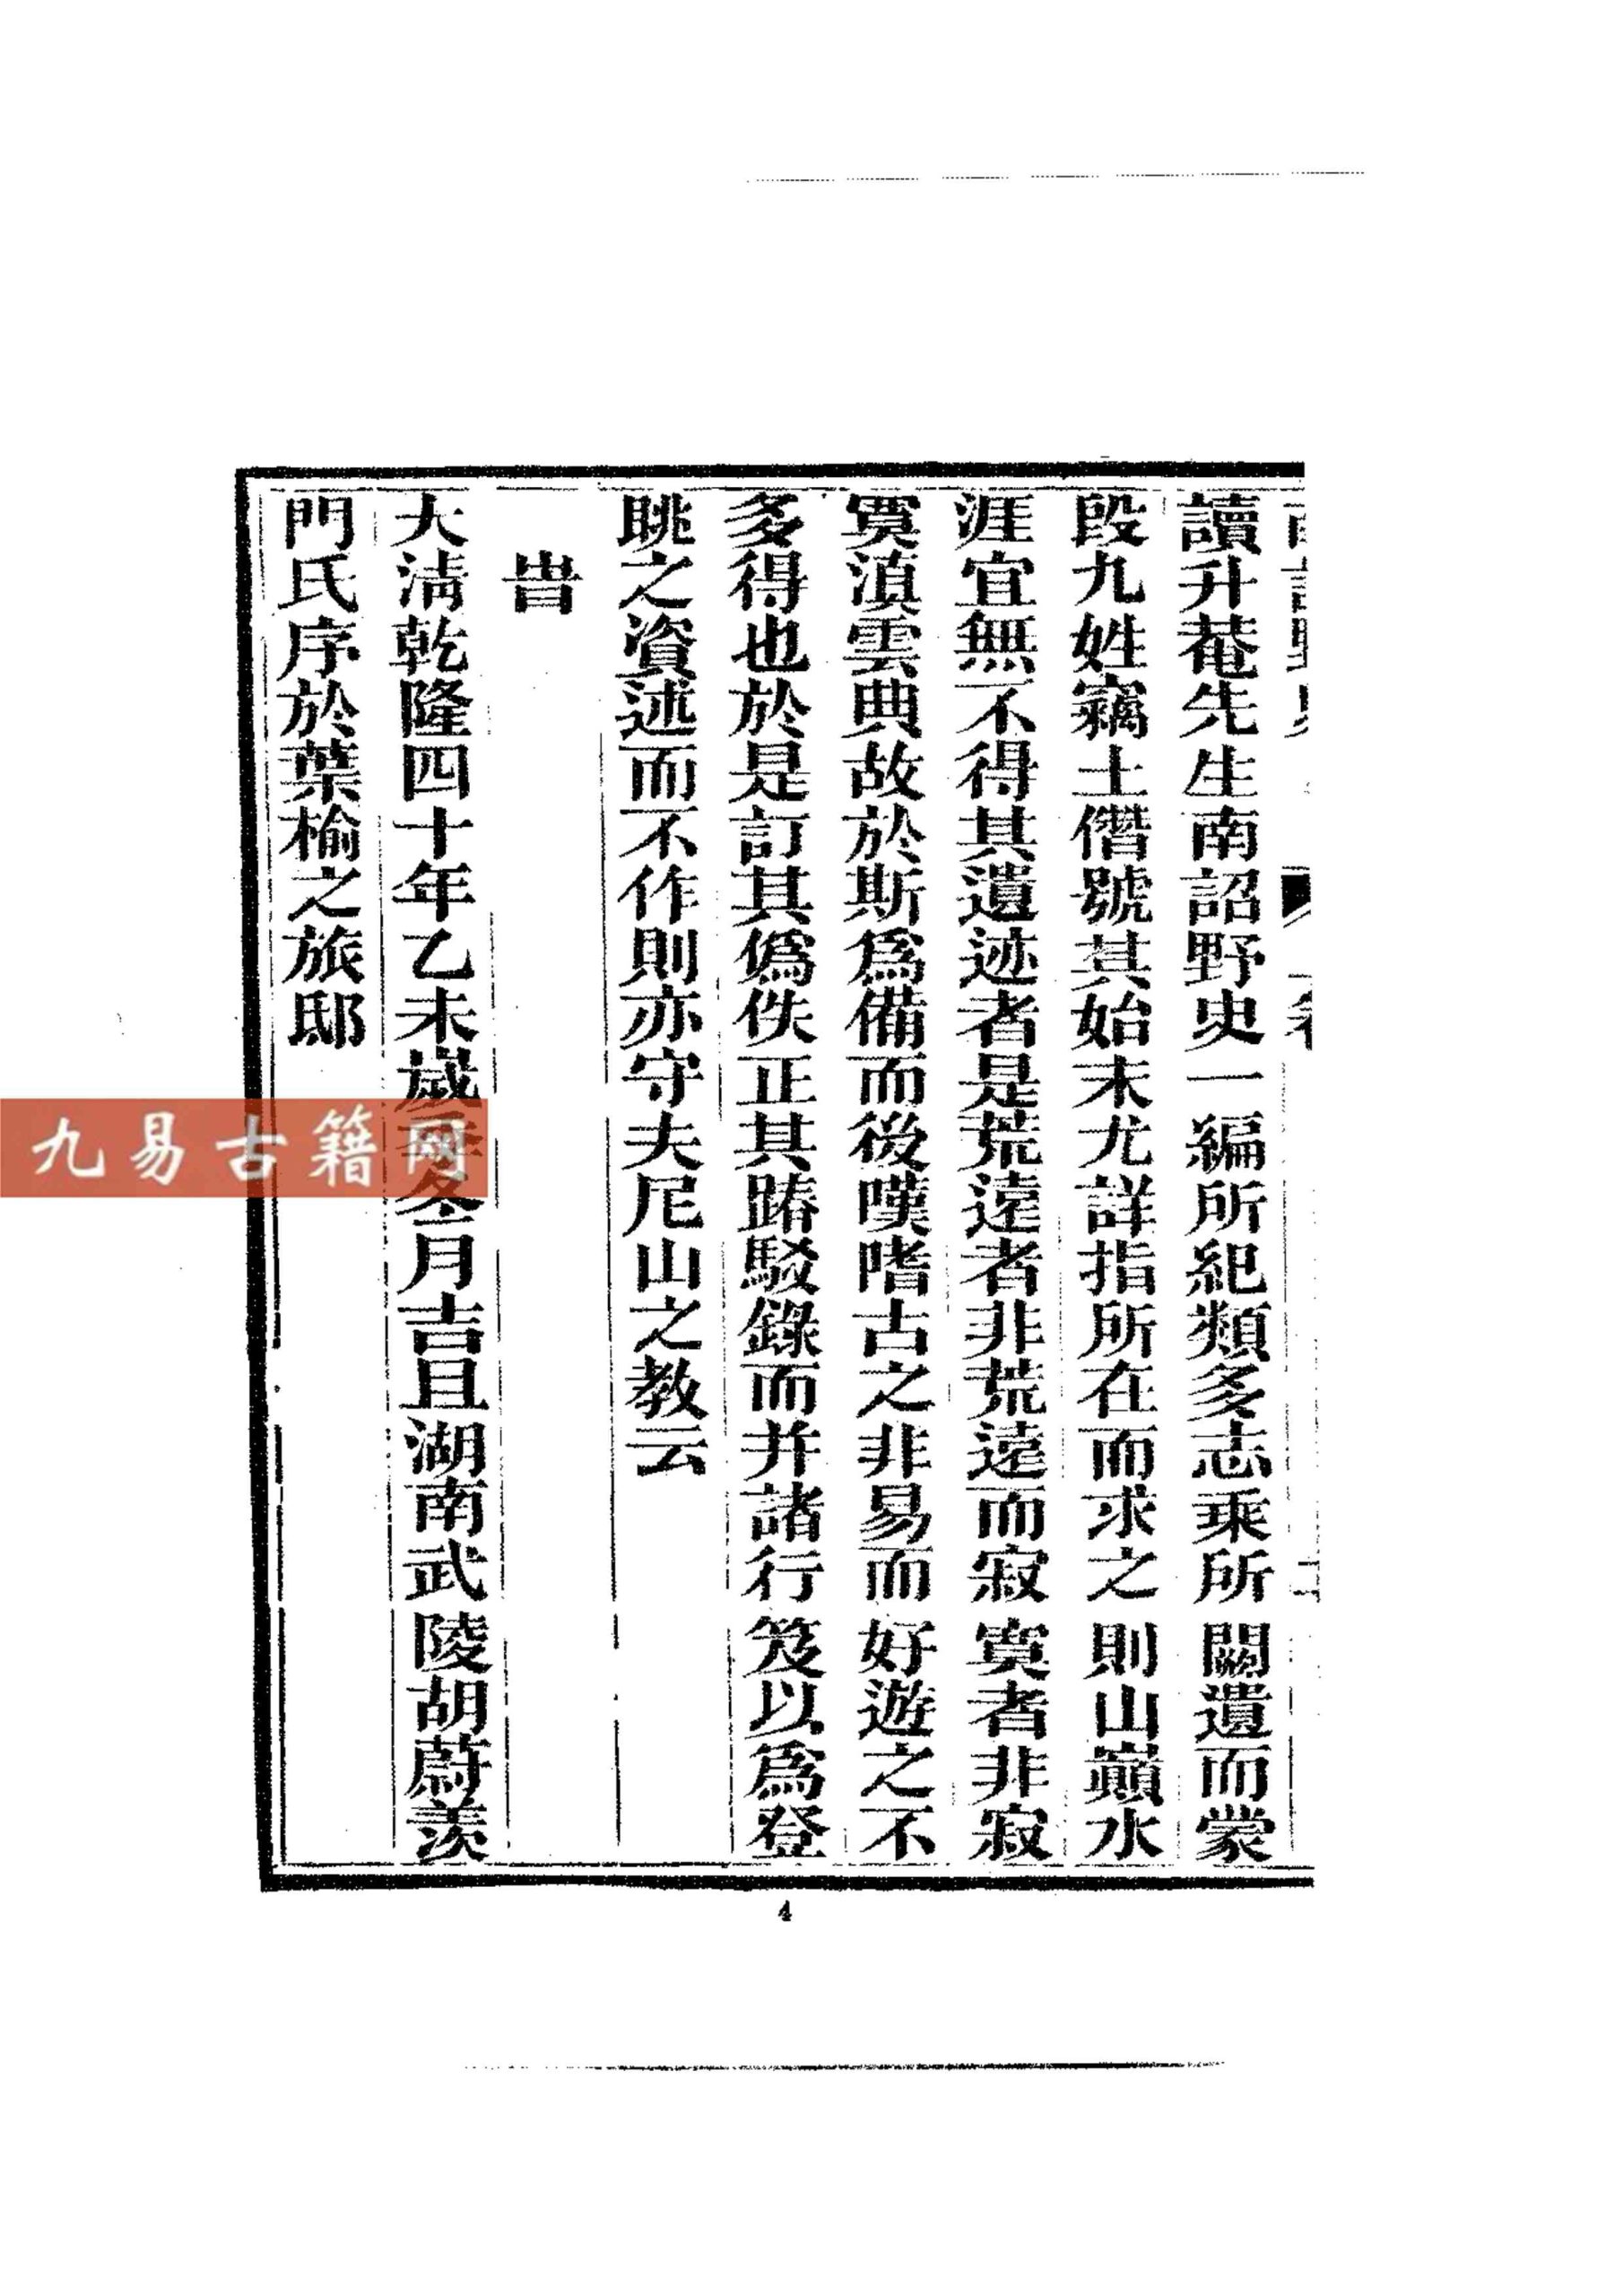 讀升菴先生南詔野史一編所紀類多志乘所闕遺而蒙
段九姓竊土僭號其始末尤詳指所在而求之則山巔水
涯宜無不得其遺迹者是荒遠者非荒遠而寂寞者非寂
寞滇雲典故於斯爲備而後嘆嗜古之非易而好遊之不
多得也於是訂其僞佚正其踳駁錄而并諸行笈以爲登
眺之資述而不作則亦守夫尼山之教云
旹
大淸乾隆四十年乙未歲冬月吉旦湖南武陵胡蔚羨
門氏序於葉榆之旅邸
九易古籍网
4